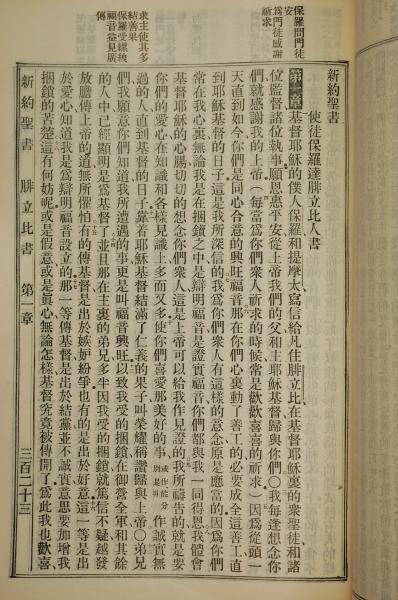 保羅問門徒
安
為門徒感謝
祈求
求主使其多
結善果
保羅受縲絏
福音益見廣
傳
新約聖書
使徒保羅達腓立比人書
第一章 基督耶穌的僕人保羅和提摩太寫信給凡住腓立比在基督耶穌裏的衆聖徒和諸
位監督諸位執事願恩惠平安從上帝我們的父和主耶穌基督歸與你們〇我每逢想念你
們就感謝我的上帝(每當為你們衆人祈求的時候常是歡歡喜喜的祈求)因為從頭一
天直到如今你們是同心合意的興旺福音那在你們心裏動了善工的必要成全這善工直
到耶穌基督的日子這是我所深信的我為你們衆人有這樣的意念原是應當的因為你們
常在我心裏無論我是在捆鎖之中是辯明福音是證實福音你們都與我一同得恩我體會
基督耶穌的心腸切切的想念你們衆人這是上帝可以給我作見證的我所禱告的就是要
你們的愛心在知識和各樣見識上多而又多使你們喜愛那美好的事 或作能分別是非 作誠實無
過的人直到基督的日子靠着耶穌基督結滿了仁義的果子叫榮耀稱讚歸與上帝〇弟兄
們我願意你們知道我所遭遇的事更是叫福音興旺以致我受的捆鎖在御營全軍和其餘
的人中已經顯明是為基督了並且那在主裏的弟兄多半因我受的捆鎖就篤信不疑越發
放膽傳上帝的道無所懼怕有的傳基督是出於嫉妒紛爭也有的是出於好意這一等是出
於愛心知道我是為辯明福音設立的那一等傳基督是出於結黨並不誠實意思要加增我
捆鎖的苦楚這有何妨呢或是假意或是眞心無論怎樣基督究竟被傳開了為此我也歡喜
新約聖書 腓立比書 第一章 三百二十三